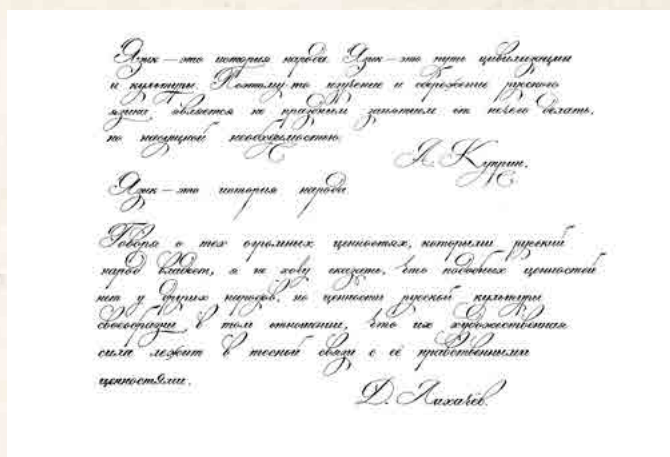 Язык — это история народа. Язык — это путь цивилизации
и культуры. Поэтому-то изучение и сбережение русского
языка является не праздным занятием от нечего делать,
но насущной необходимостью.
А. Куприн.
Язык — это история народа.
Говоря о тех огромных ценностях, которыми русский
народ владеет, я не хочу сказать, что подобных ценностей
нет у других народов, но ценности русской культуры
своеобразны в том отношении, что их художественная
сила лежит в тесной связи с её нравственными
ценностями.
Д. Лихачёв.